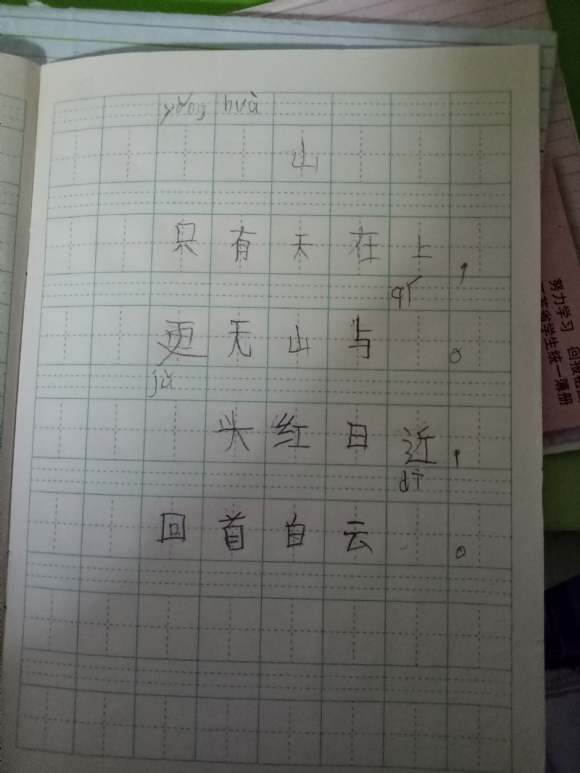 yǒng huà
山
只有天在上，
qí
更无山与 。
jǔ
头红日近，
dī
回首白云 。
努力学习 回报祖国
江苏省学生统一簿册